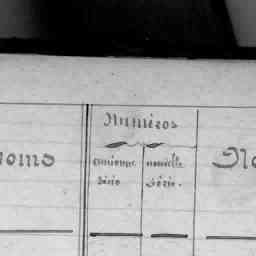 Numéros
noms
ancienne nouvelle
série série.
No